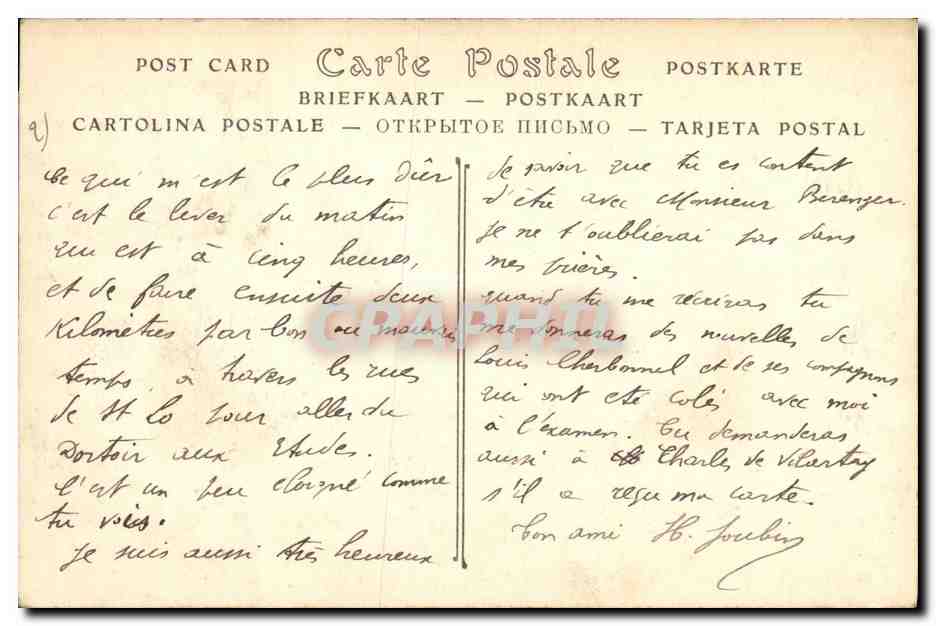 POST CARD Carte Postale POSTKARTE
BRIEFKAART — POSTKAART
CARTOLINA POSTALE — ОТКРЫТОЕ ПИСЬМО — TARJETA POSTAL
2)
Ce qui m'est le plus dûr
c'est le lever du matin
qui est à cinq heures,
et de faire ensuite deux
Kilomètres par bon ou mauvais
temps, à travers les rues
de St Lo pour aller du
Dortoir aux Etudes.
C'est un peu eloigné comme
tu vois.
Je suis aussi très heureux
de savoir que tu es content
d'être avec Monsieur Berenger.
Je ne t'oublierai pas dans
mes prières.
quand tu me récriras tu
me donneras des nouvelles de
Louis Cherbonnel et de ses compagnons
qui ont été colés avec moi
à l'éxamen. Tu demanderas
aussi à Charles de
s'il a reçu ma carte.
Ton ami H. Joubin
CPAPHIL